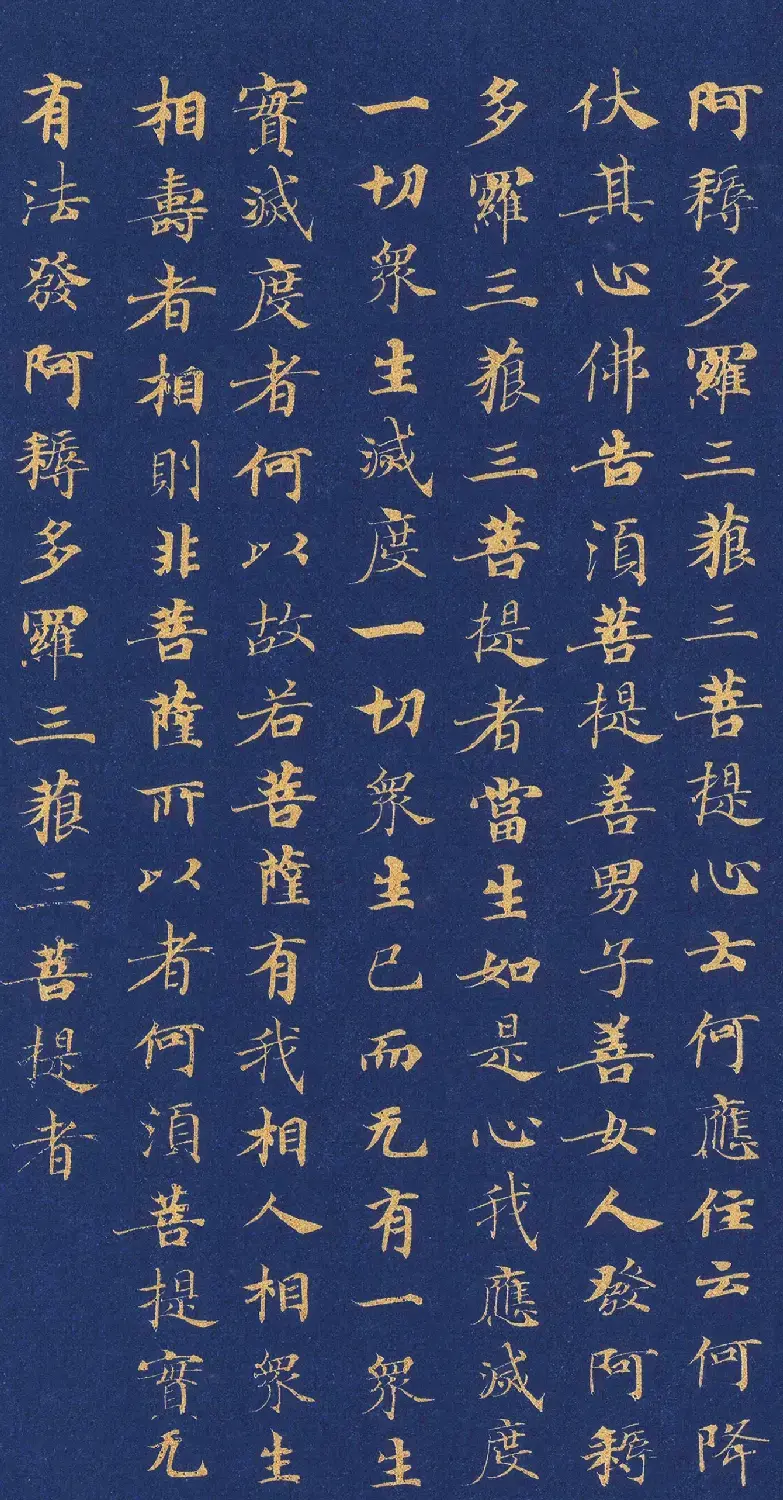 阿耨多羅三藐三菩提心云何應住云何降
伏其心佛告須菩提善男子善女人發阿耨
多羅三藐三菩提者當生如是心我應滅度
一切眾生滅度一切眾生已而无有一眾生
實滅度者何以故若菩薩有我相人相眾生
相壽者相則非菩薩所以者何須菩提實无
有法發阿耨多羅三藐三菩提者